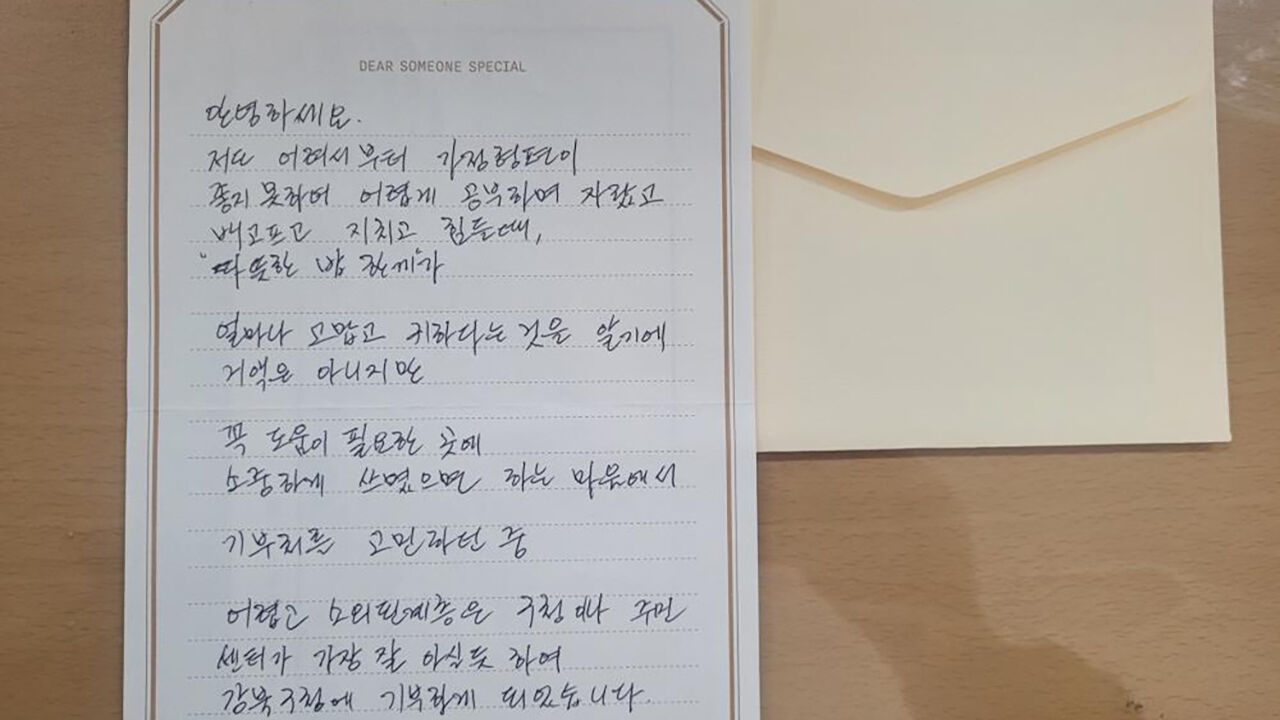 DEAR SOMEONE SPECIAL
안녕하세요.
저도 어려서부터 가정형편이
좋지 못하여 어렵게 공부하며 자랐고
배고프고 지치고 힘들때,
"따뜻한 밥 한끼"가
얼마나 고맙고 귀하다는 것을 알기에
거액은 아니지만
꼭 도움이 필요한 곳에
소중하게 쓰였으면 하는 마음에서
기부처를 고민하던 중
어렵고 소외된계층은 구청이나 주민
센터가 가장 잘 아실듯 하여
강북구청에 기부하게 되었습니다.